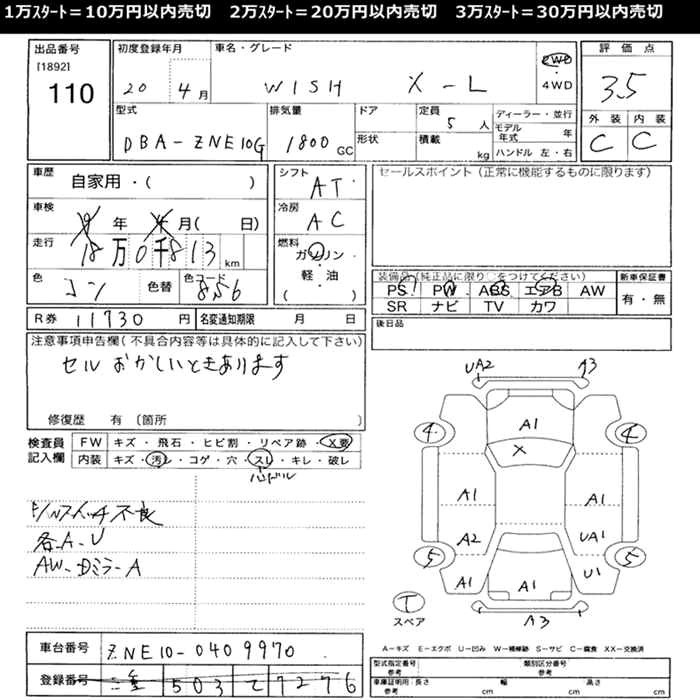 1万スタート＝10万円以内売切　2万スタート＝20万円以内売切　3万スタート＝30万円以内売切
出品番号 初度登録年月 車名・グレード 評価点
[1892]
110 20 4月 WISH X-L 2WD 4WD 3.5
型式 排気量 ドア 定員 ディーラー・並行 外装 内装
DBA-ZNE10G 1800 GC 形状 5人 積載 kg モデル年式 年 ハンドル 左・右 C C
車歴 自家用・(　) シフト AT セールスポイント（正常に機能するものに限ります）
車検 年 月( 日) 冷房 AC
走行 18万0千813 km 燃料 ガソリン・軽・油 ( )
装備品（純正品に限り○をつけてください） 新車保証書
色 コン 色替 色コード 8S6 PS PW ABS エアB AW 有・無
SR ナビ TV カワ
R券 11730円 名変通知期限 月 日 後日品
注意事項申告欄（不具合内容等は具体的に記入して下さい）
セルおかしいときあります
修復歴 有 〔箇所 〕
UA2 A3
検査員 FW キズ・飛石・ヒビ割・リペア跡・X要
記入欄 内装 キズ・汚レ・コゲ・穴・スレ・キレ・破レ
ハンドル
A1
4 4
X
A1 A1
A2 UA1
5 5
A1 U1
A1
A3
T
スペア
スイッチ不良
各-A-U
AW-Dミラ-A
A－キズ E－エクボ U－凹み W－補修跡 S－サビ C－腐食 XX－交換済
車台番号 ZNE10-0409970
型式指定番号 類別区分番号
参考 参考
登録番号 503 て 7276
車庫証明用：長さ 幅 高さ
参考 cm cm cm